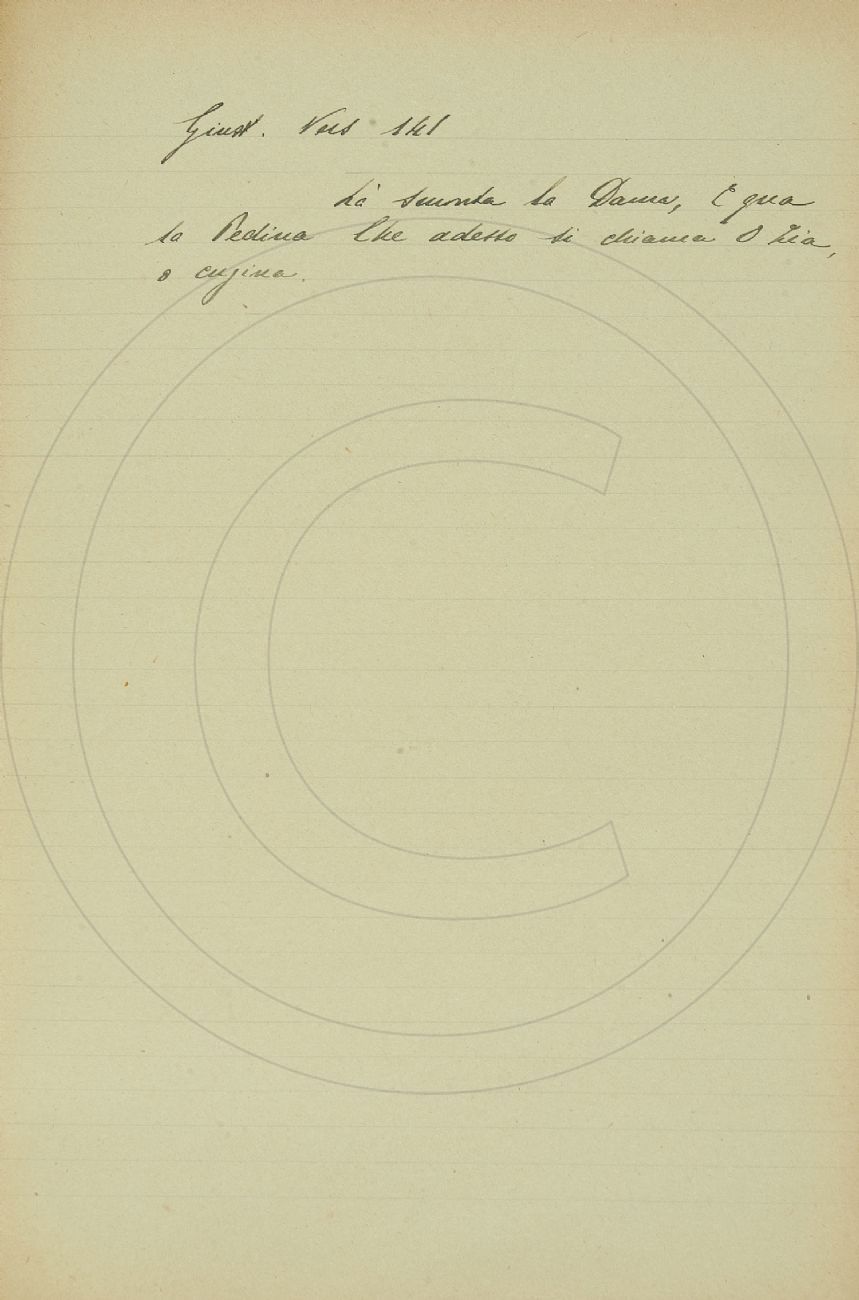 Giust. Vers 141
Là smonta la Dama, E qua
la Pedina Che adesso si chiama O Zia,
o cugina.